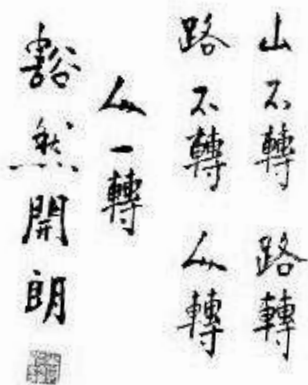 山不轉路轉
路不轉人轉
人一轉
豁然開朗